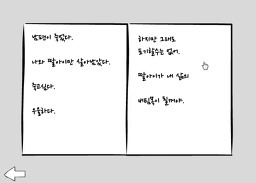 남편이 죽었다.
나와 딸아이만 살아남았다.
죽고싶다.
우울하다.
하지만 그래도
포기할수는 없어.
딸아이가 내 삶의
버팀목이 될꺼야.